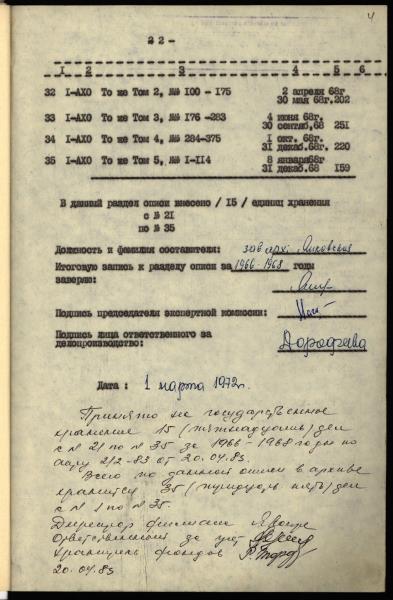 4
22-
1 2 3 4 5 6
32 I-АХО То же Том 2, №№ 100 - 175 2 апреля 68г
30 мая 68г. 202
33 I-АХО То же Том 3, №№ 176 -283 4 июня 68г.
30 сентяб,68 251
34 I-АХО То же Том 4, №№ 284-375 1 окт. 68г.
31 декаб.68г. 220
35 I-АХО То же Том 5, №№ I-II4 8 января68г
31 декаб.68 159
В данный раздел описи внесено / 15 / единиц хранения
с № 21
по № 35
Должность и фамилия составителя: зав арх:
Итоговую запись к разделу описи за 1966-1968 годы
заверяю:
Подпись председателя экспертной комиссии:
Подпись лица ответственного за
делопроизводство: Дорофеева
Дата : 1 марта 1972г.
Принято на государственное
хранение 15 (пятнадцать) дел
с № 21 по № 35 за 1966-1968 годы по
акту 2/2-83 от 20.04.83.
Всего по данной описи в архиве
хранится 35 (тридцать пять) дел
с № 1 по № 35.
Директор филиала
Ответственный за учет
Хранитель фондов
20.04.83